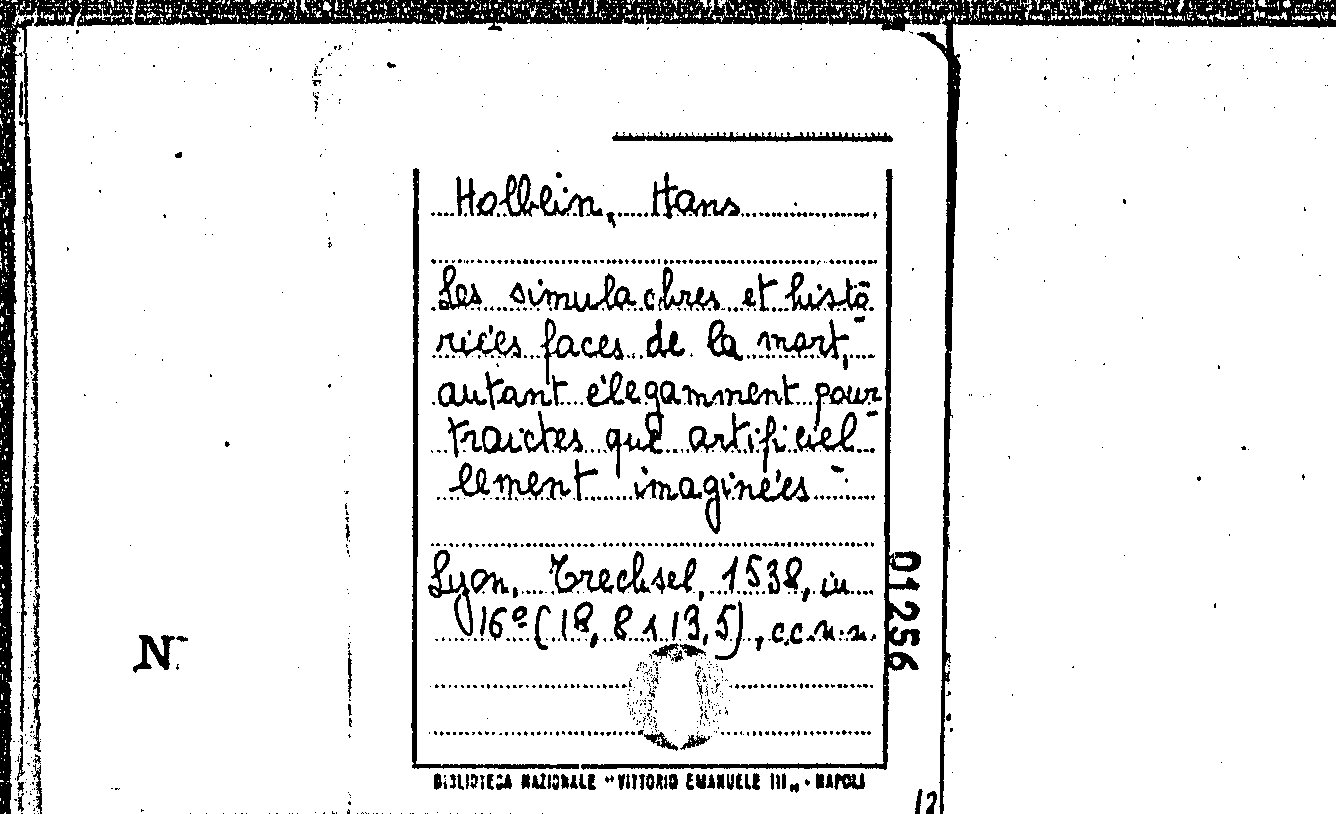 Holbein, Hans
Les simulachres et histo-
riées faces de la mort,
autant élegamment pour-
traictes que artificiel-
lement imaginées.
Lyon, Trechsel, 1538, in
16º (18,8 x 13,5), c.c.n.n.
01256
N
BIBLIOTECA NAZIONALE "VITTORIO EMANUELE III„ - NAPOLI
12